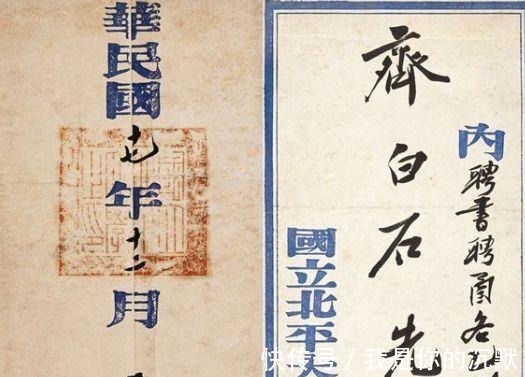 華民國十七年十二月
內聘書聘函各
齊白石先
國立北平大
快传号 / 我是你的沉默